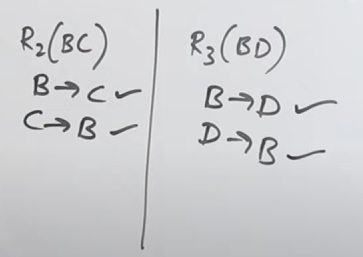 R₂(BC)
B→C ✓
C→B ✓
R₃(BD)
B→D ✓
D→B ✓